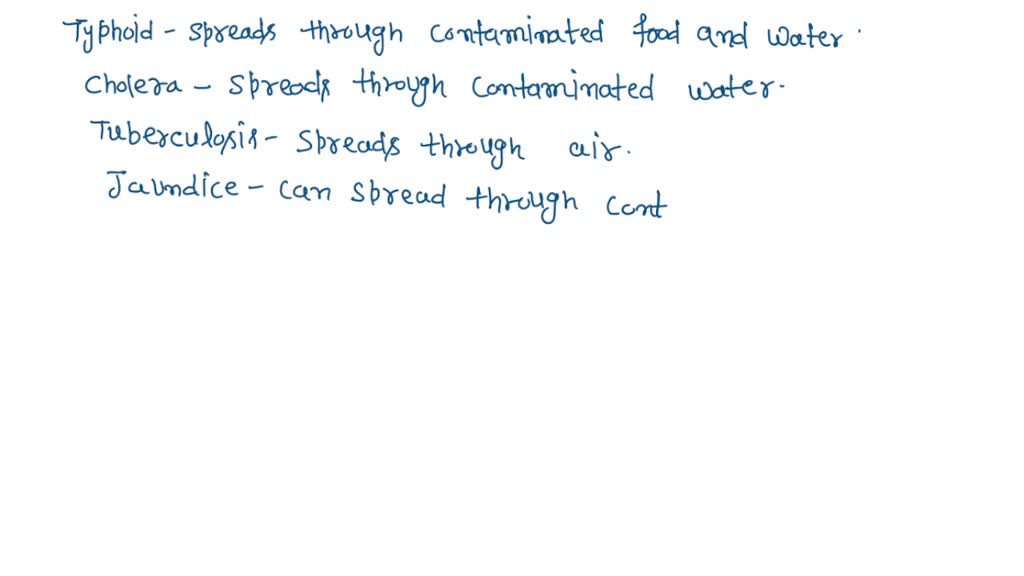 Typhoid - spreads through contaminated food and water.
Cholera - spreads through contaminated water.
Tuberculosis - spreads through air.
Jaundice - can spread through cont